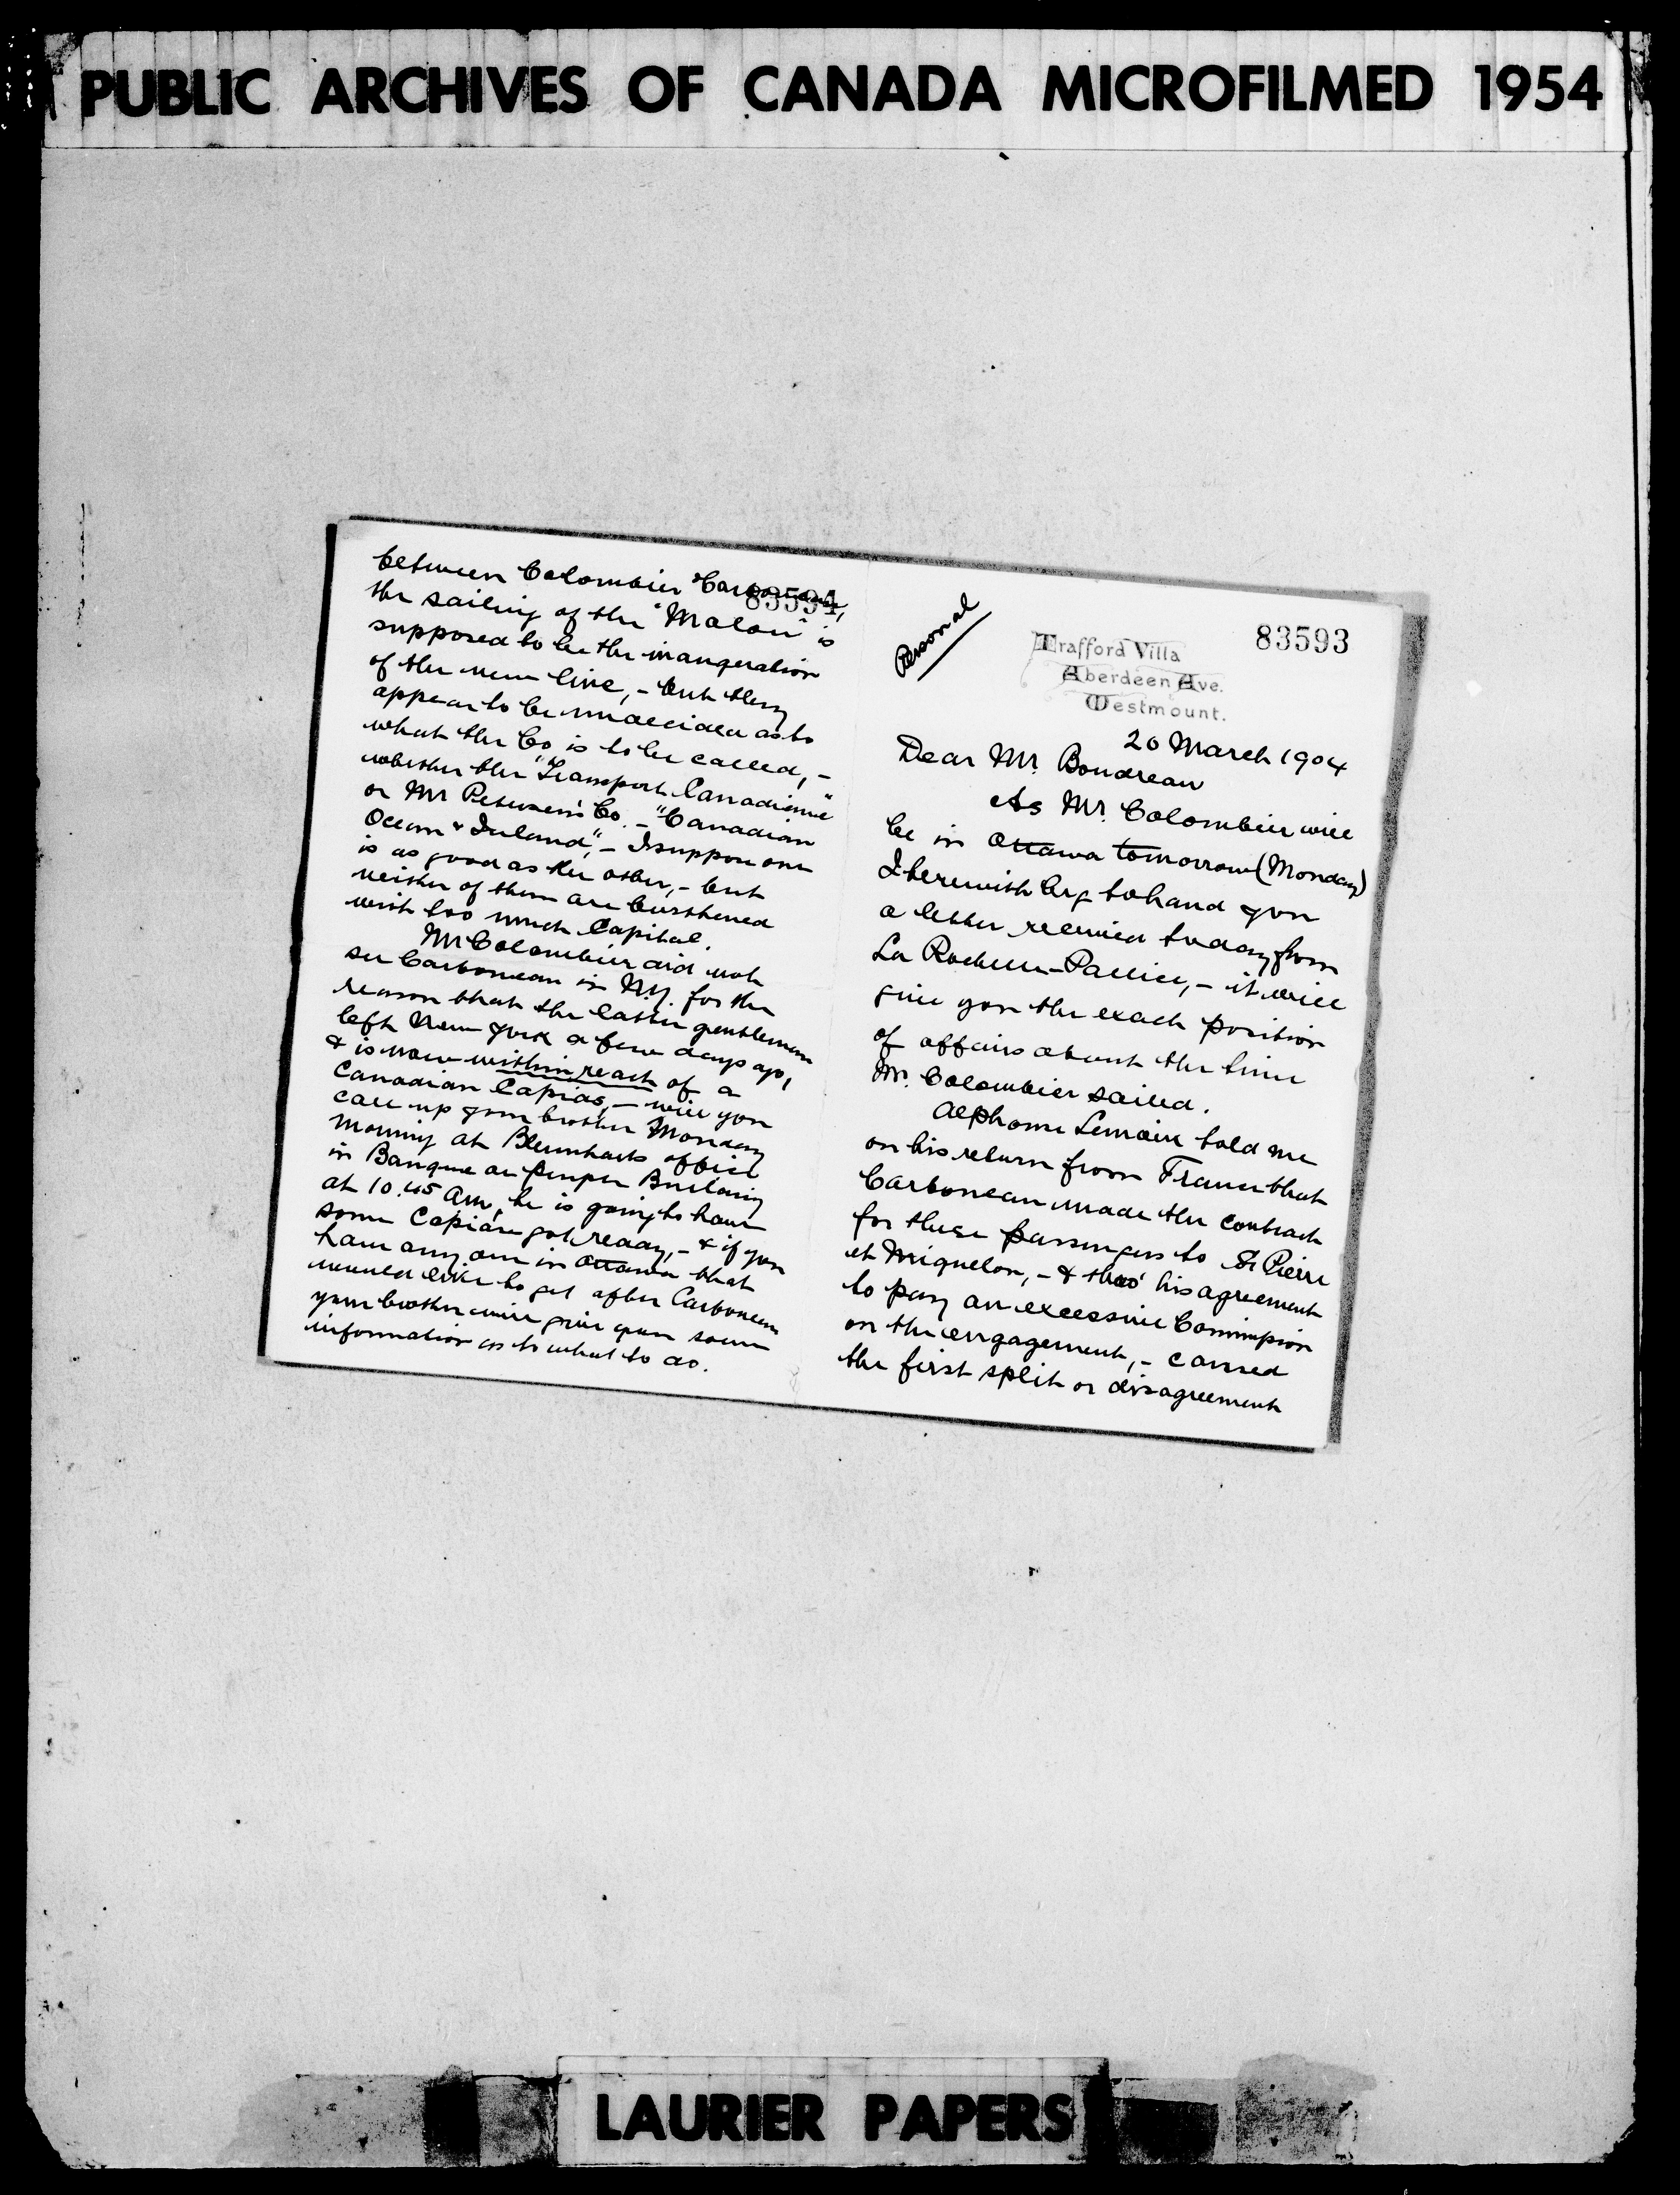 PUBLIC ARCHIVES OF CANADA MICROFILMED 1954
Personal
83593
Trafford Villa
Aberdeen Ave.
Westmount.
20 March 1904
Dear Mr. Boudreau
As Mr. Colombier will
be in Ottawa tomorrow (Monday)
I herewith beg to hand you
a letter received today from
La Rochelle-Pallice, - it will
give you the exact position
of affairs about the time
Mr. Colombier sailed.
Alphonse Lemoine told me
on his return from France that
Carboneau made the contract
for these passengers to St Pierre
et Miquelon, - & that his agreement
to pay an excessive Commission
on the engagement, - caused
the first split or disagreement
83594
between Colombier & Carboneau,
the sailing of the "Malou" is
supposed to be the inaugeration
of the new line, - but they
appear to be undecided as to
what the Co. is to be called, -
whether the "Transport Canadienne"
or Mr Petersen's Co. - "Canadian
Ocean & Inland", - I suppose one
is as good as the other, - but
neither of them are burthened
with too much Capital.
Mr Colombier did not
see Carboneau in N.Y. for the
reason that the latter gentleman
left New York a few days ago,
& is now within reach of a
Canadian Capias, - will you
call up your brother Monday
morning at office
in Banque du Peuple Building
at 10.45 am, he is going to have
some Capias got ready, - & if you
have any one in Ottawa that
would like to get after Carboneau
your brother will give you some
information as to what to do.
LAURIER PAPERS